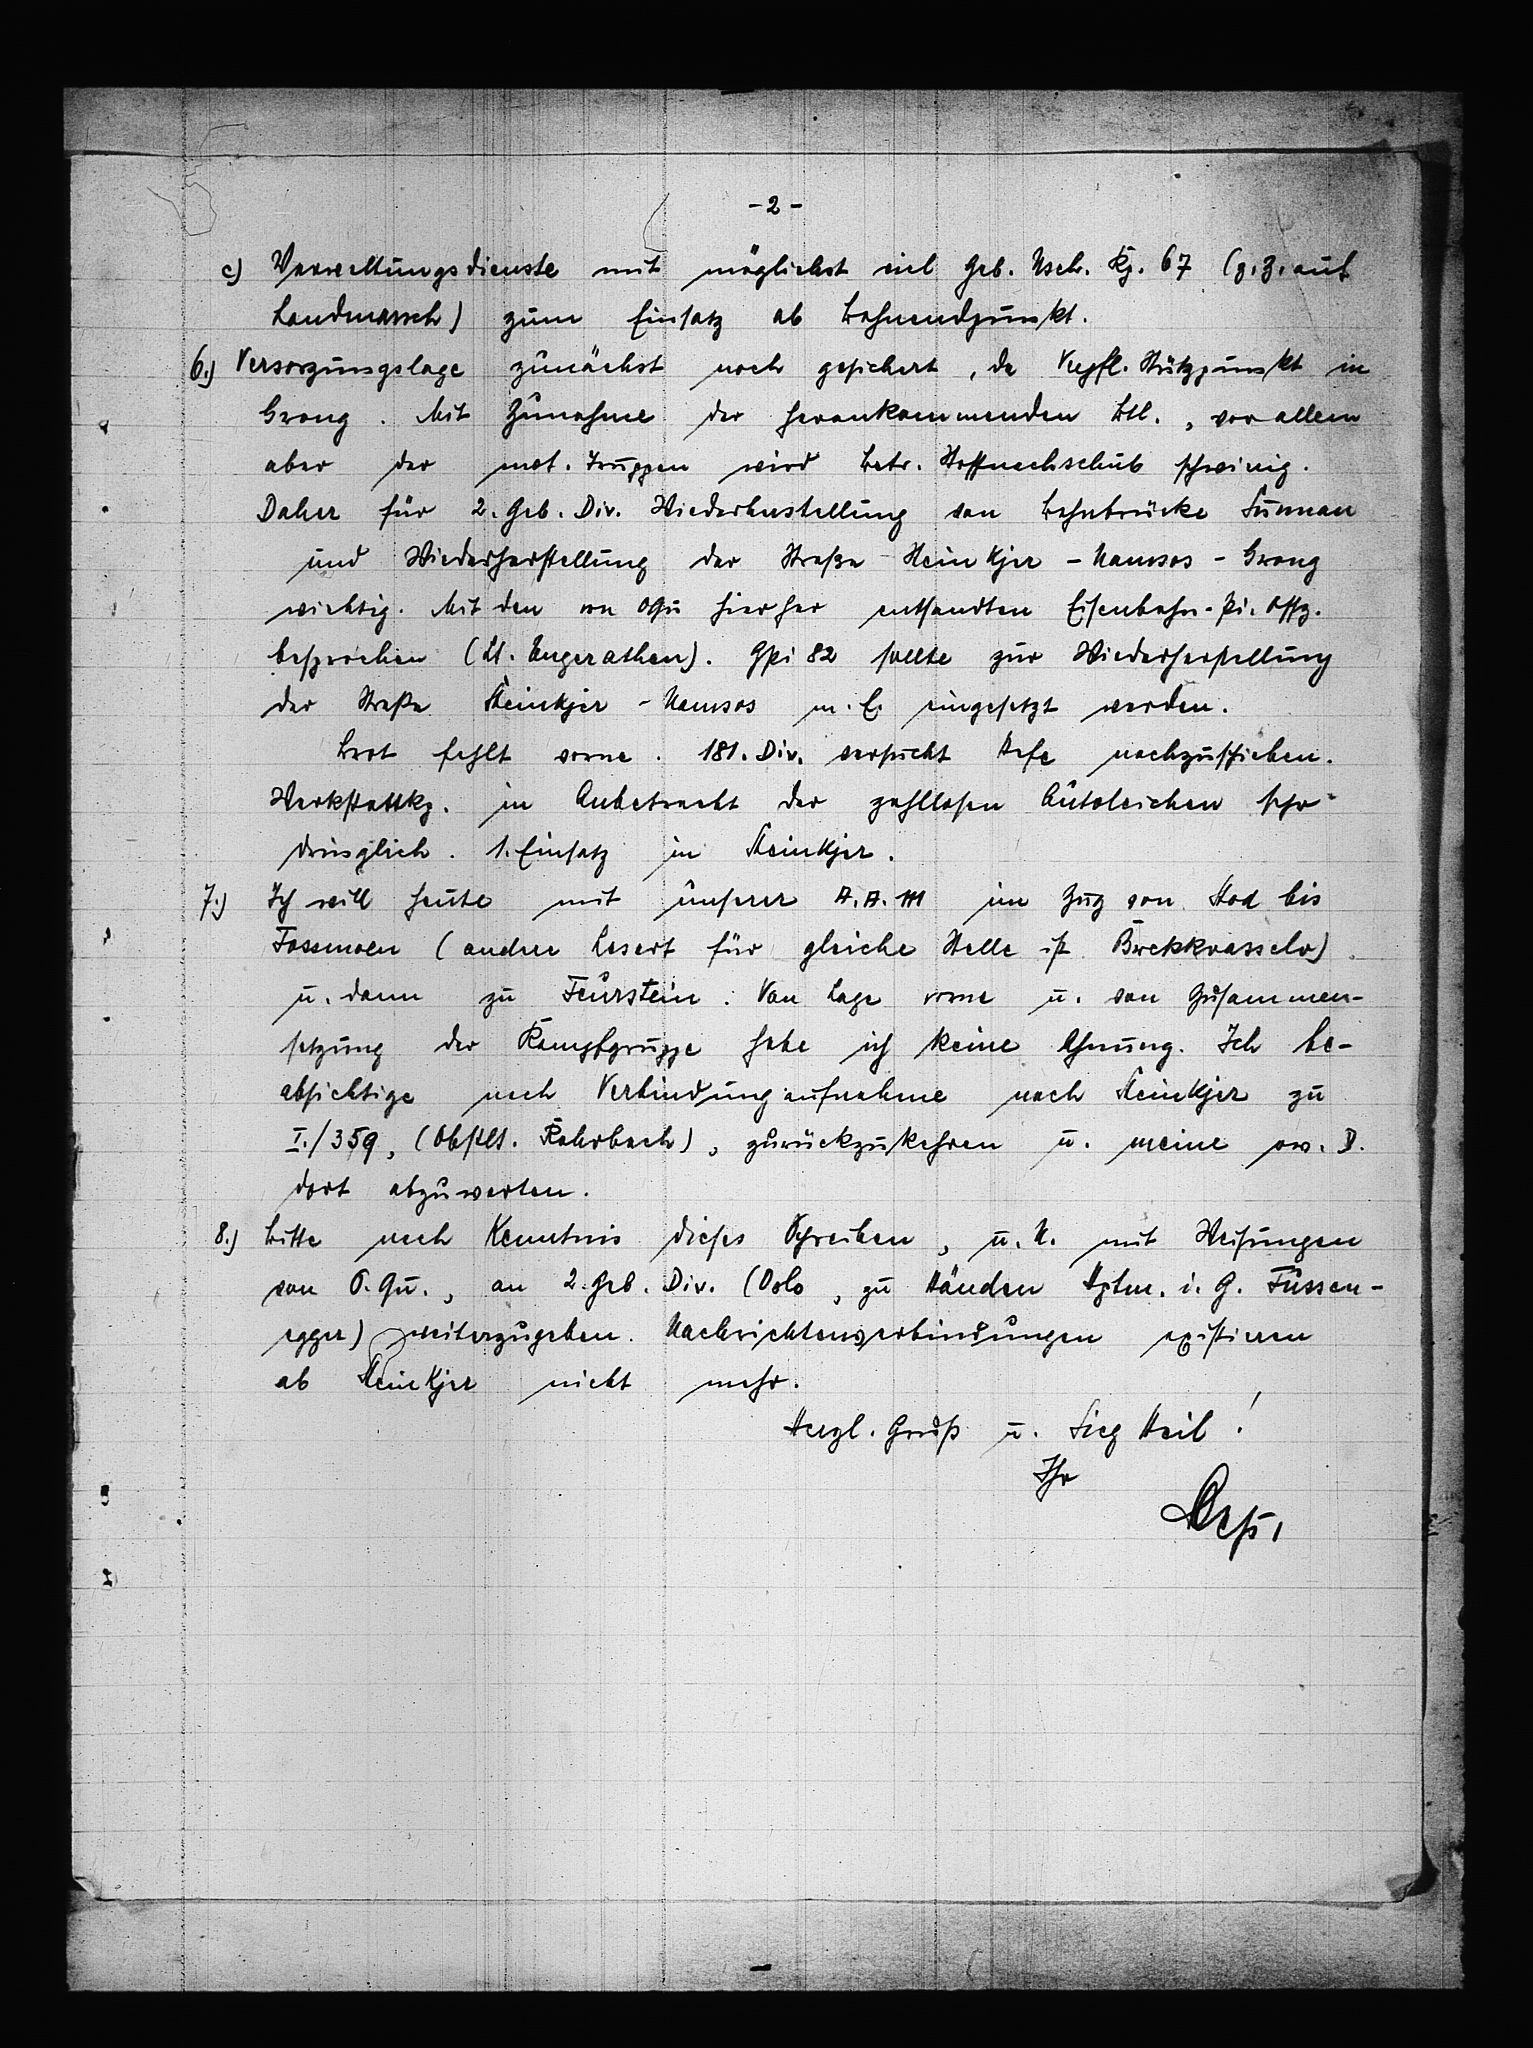 -2-
c) Verwaltungsdienste mit möglichst viel Geb. Nsch. Kp. 67 (z.Z. auf
Landmarsch) zum Einsatz ab Bahnendpunkt.
6.) Versorgungslage zunächst noch gesichert, da Verpfl. Stützpunkt in
Grong. Mit Zunahme der herankommenden Btl., vor allem
aber der mot. Truppen wird Betr. Stoffnachschub schwierig.
Daher für 2. Geb. Div. Wiederherstellung von Bahnbrücke Sunnan
und Wiederherstellung der Straße Steinkjer - Namsos - Grong
wichtig. Mit den von OQu hierher entsandten Eisenbahn-Pi. Offz.
besprochen (Lt. Ungerathen). GPi 82 sollte zur Wiederherstellung
der Straße Steinkjer - Namsos m.E. eingesetzt werden.
Brot fehlt vorne. 181. Div. versucht Hefe nachzuschieben.
Werkstattkp. in Anbetracht der zahllosen Autoleichen sehr
dringlich. 1. Einsatz in Steinkjer.
7.) Ich will heute mit unserer A.A. 111 im Zug von Stod bis
Fossmoen (andere Lesart für gleiche Stelle ist Brekkvasselv)
u. dann zu Feurstein. Von Lage vorne u. von Zusammen-
setzung der Kampfgruppe habe ich keine Ahnung. Ich be-
absichtige nach Verbindungaufnahme nach Steinkjer zu
I./359, (Obstlt. Rohrbach), zurückzukehren u. meine D.
dort abzuwarten.
8.) Bitte nach Kenntnis dieses Schreiben, u.U. mit Weisungen
von O.Qu., an 2. Geb. Div. (Oslo, zu Händen Hptm. i. G. Fussen-
egger) weiterzugeben. Nachrichtenverbindungen existieren
ab Steinkjer nicht mehr.
Herzl. Gruß u. Sieg Heil!
Ihr